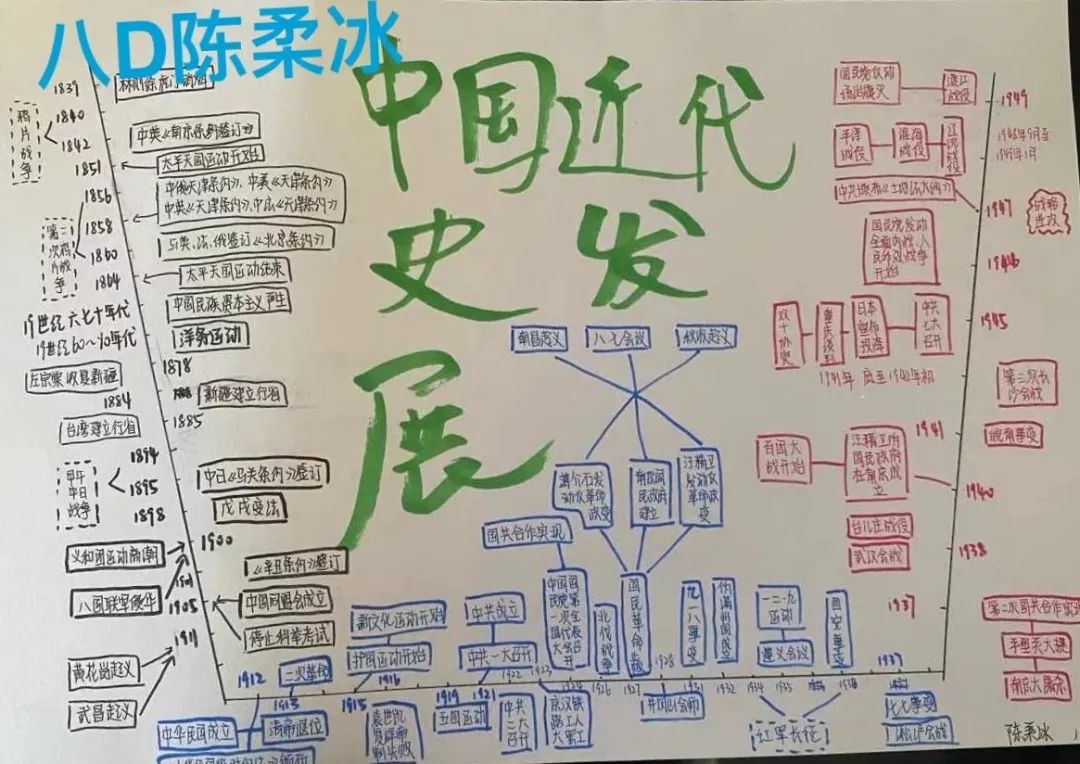 八D陈柔冰
中国近代
史发
展
1839
林则徐虎门销烟
鸦片战争
1840
1842
中英《南京条约》签订
1851
太平天国运动开始
1856
中俄《天津条约》、中美《天津条约》
中英《天津条约》、中法《天津条约》
1858
第二次鸦片战争
1860
与英、法、俄签订《北京条约》
1864
太平天国运动结束
中国民族资本主义产生
19世纪六七十年代
19世纪60~90年代
洋务运动
1878
左宗棠收复新疆
1884
新疆建立行省
1885
台湾建立行省
1894
甲午中日战争
1895
中日《马关条约》签订
1898
戊戌变法
1900
义和团运动高潮
八国联军侵华
1901
《辛丑条约》签订
1905
中国同盟会成立
停止科举考试
1911
黄花岗起义
武昌起义
1912
中华民国成立
清帝退位
1913
二次革命
1915
新文化运动开始
护国运动开始
1916
袁世凯复辟帝制失败
1919
五四运动
1921
中共成立
中共一大召开
1922
中共二大召开
1923
京汉铁路工人大罢工
国共合作实现
中国国民党第一次全国代表大会召开
1926
北伐战争
1927
国民革命失败
蒋介石发动反革命政变
南京国民政府建立
汪精卫发动反革命政变
南昌起义
八七会议
秋收起义
1928
井冈山会师
1931
九一八事变
1932
伪满州国成立
1934
1935
一二·九运动
遵义会议
红军长征
西安事变
1937
七七事变
淞沪会战
1937
第二次国共合作实现
平型关大捷
南京大屠杀
1938
台儿庄战役
武汉会战
1940
百团大战开始
汪精卫伪国民政府在南京成立
1941
皖南事变
第三次长沙会战
1941年底至1942年初
1945
双十协定
重庆谈判
日本宣布投降
中共七大召开
1946
国民党发动全面内战,人民解放战争开始
1947
中共颁布《土地法大纲》
战略进攻
1948年9月至
1949年1月
平津战役
淮海战役
辽沈战役
1949
国民党反动统治覆灭
渡江战役
陈柔冰